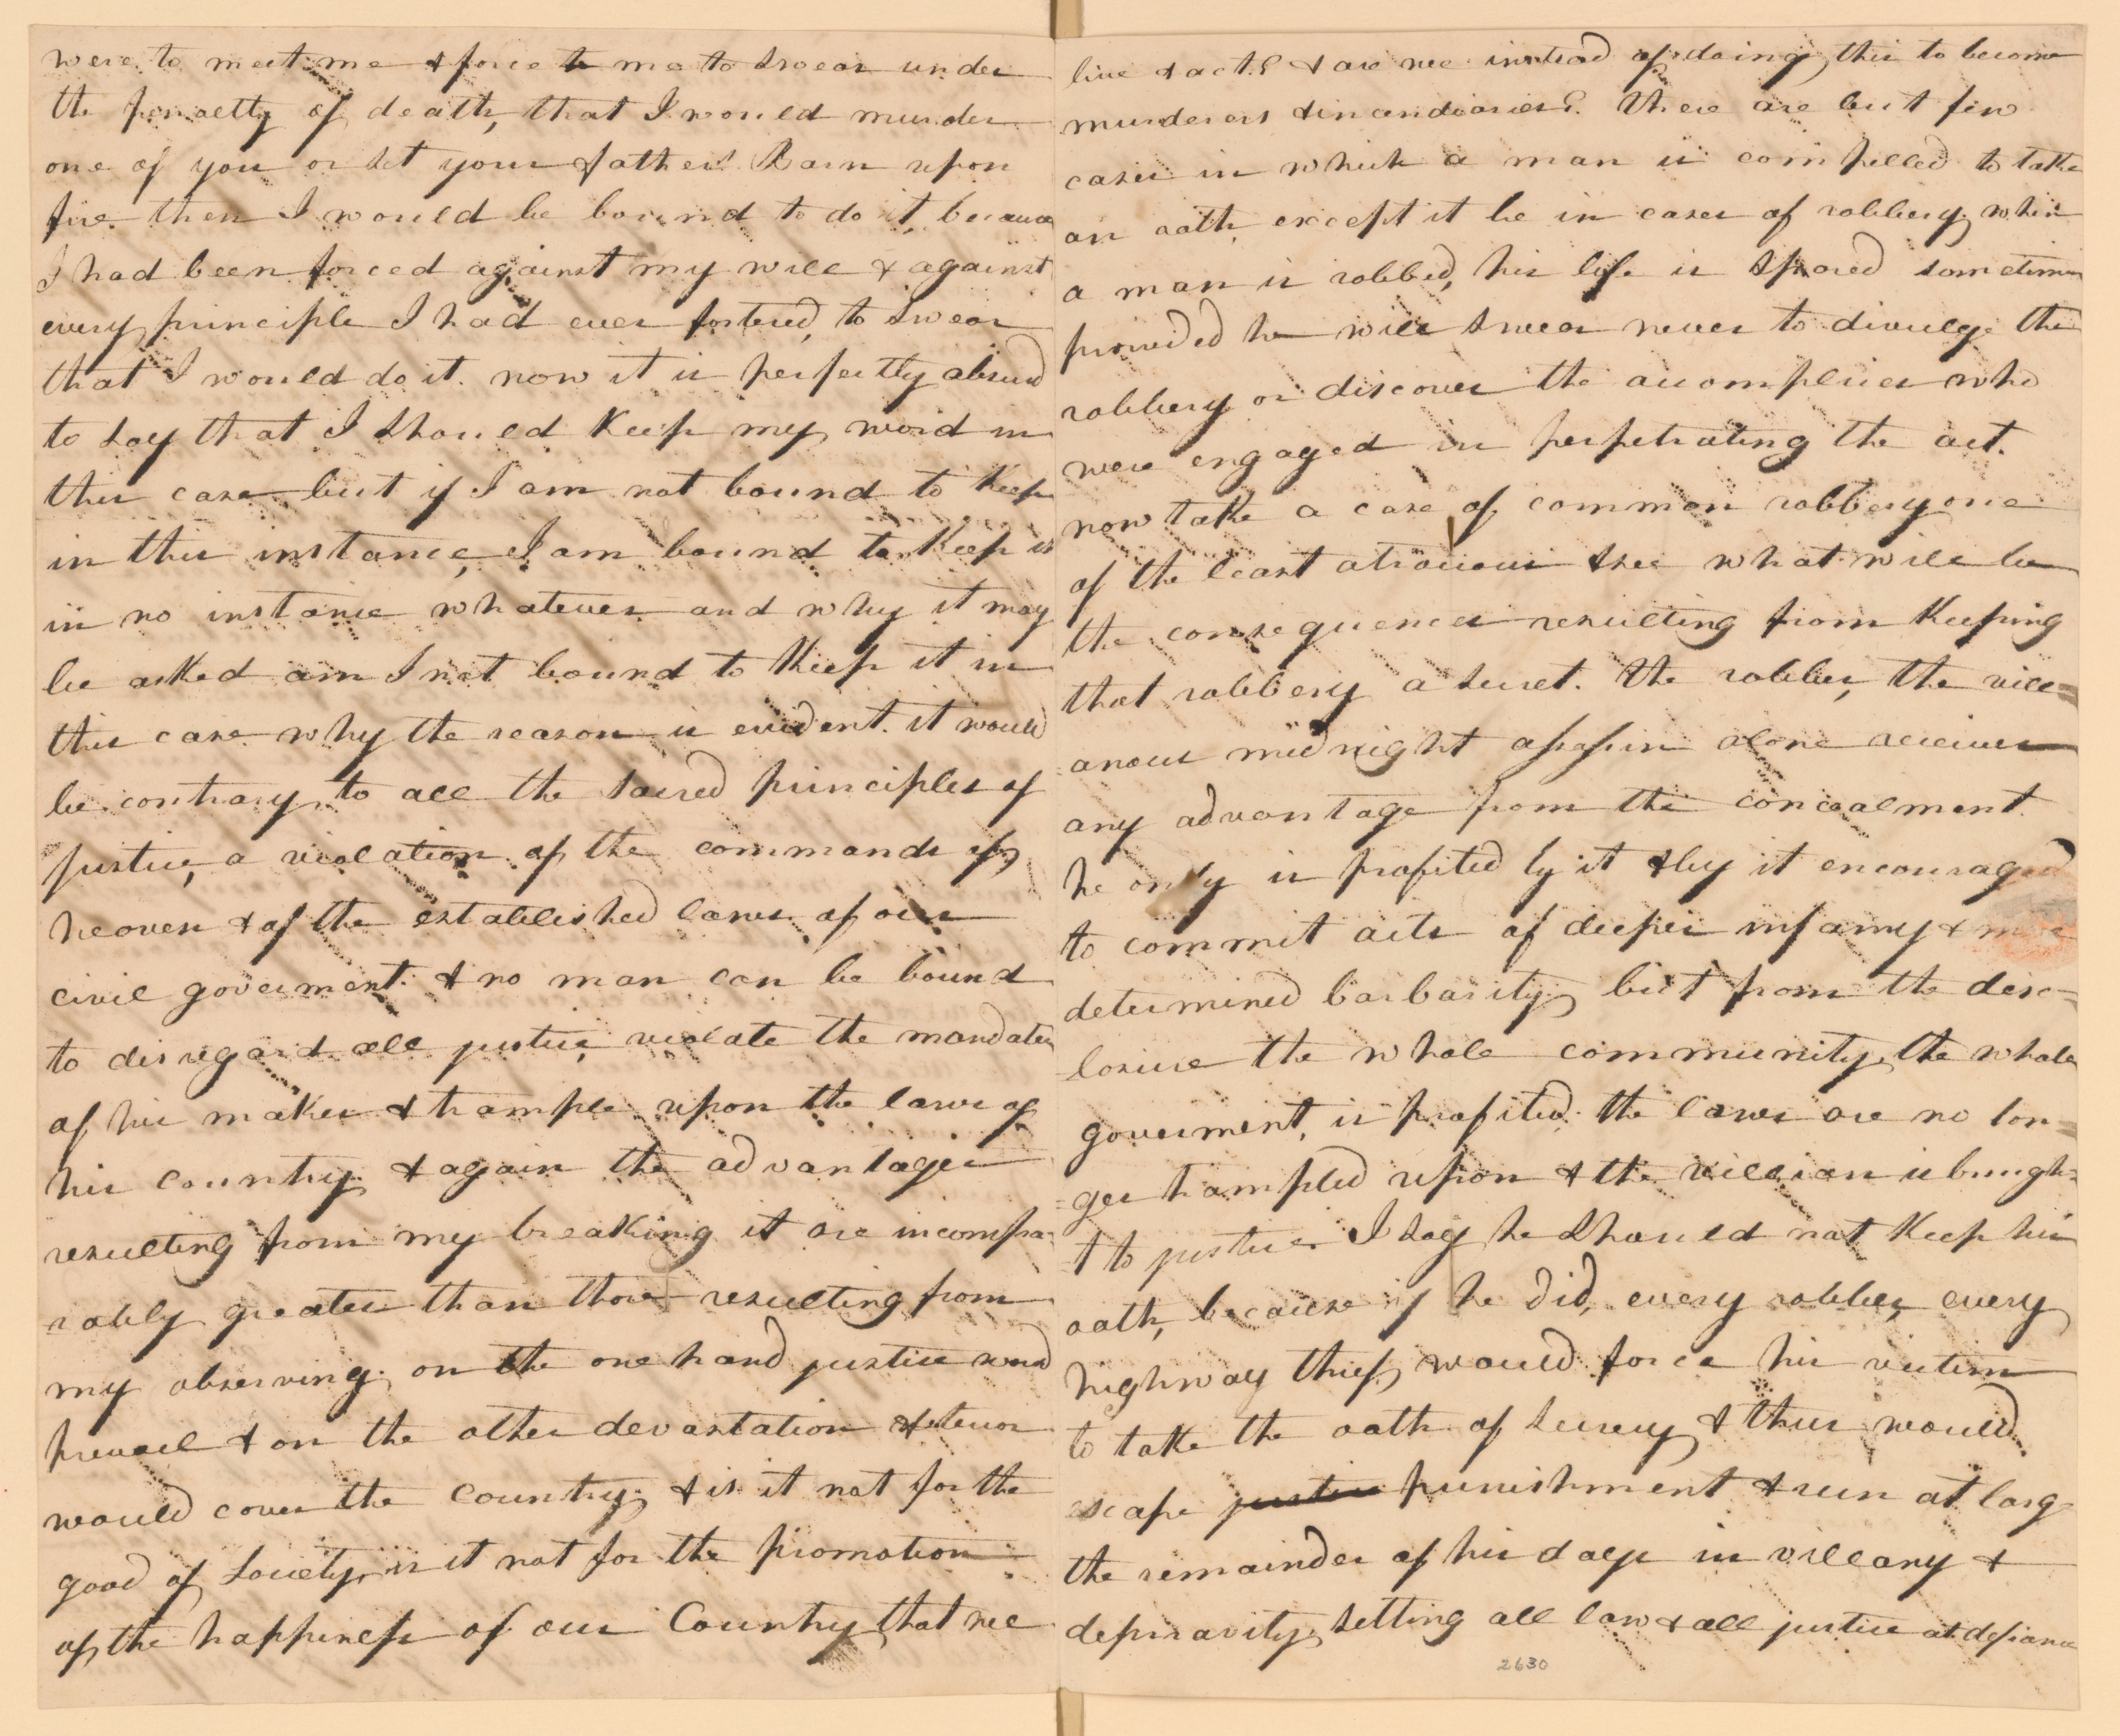 were to meet me & force to me to swear under
the penaelty of death, that I would murder
one of you or set your father's Barn upon
fire then I would be bound to do it, because
I had been forced against my will & against
every principle I had ever fostered, to swear
that I would do it. now it is perfectly absurd
to say that I should keep my word in
this case but if I am not bound to keep
in this instance, I am bound to keep it
in no instance whatever and why it may
be asked am I not bound to keep it in
this case why the reason is evident. it would
be contrary to all the sacred principles of
justice, a violation of the commands of
heaven & of the established laws of our
civil goverment. & no man can be bound
to disregard all justice, violate the mandates
of his maker & trample upon the laws of
his country, & again the advantages
resulting from my breaking it are incompa-
rably greater than those resulting from
my observing. on the one hand justice would
prevail & on the other devastation & terror
would cover the country, & is it not for the
good of society, is it not for the promotion
of the happiness of our Country, that we
live & act? & are we instead of doing this to become
murderers & incendiaries? There are but few
cases in which a man is compelled to take
an oath, except it be in cases of robbery, when
a man is robbed, his life is spared sometimes
provided he will swear never to divulge the
robbery or discover the accomplices who
were engaged in perpetrating the act.
now take a case of common robbery one
of the least atrocious & see what will be
the consequences resulting from keeping
that robbery a secret. The robber, the vill=
=anous midnight assassin alone receives
any advantage from the concealment.
he only is profited by it & by it encouraged
to commit acts of deeper infamy & more
determined barbarity, but from the disc-
losure the whole community, the whole
goverment, is profited. the laws are no lon=
=ger trampled upon & the villian is brough=
=t to justice. I say he should not keep his
oath, because if he did, every robber, every
highway thief, would force his victim
to take the oath of secrecy & thus would
escape justice punishment & run at large
the remainder of his days in villany &
depravity, setting all law & all justice at defiance
2630